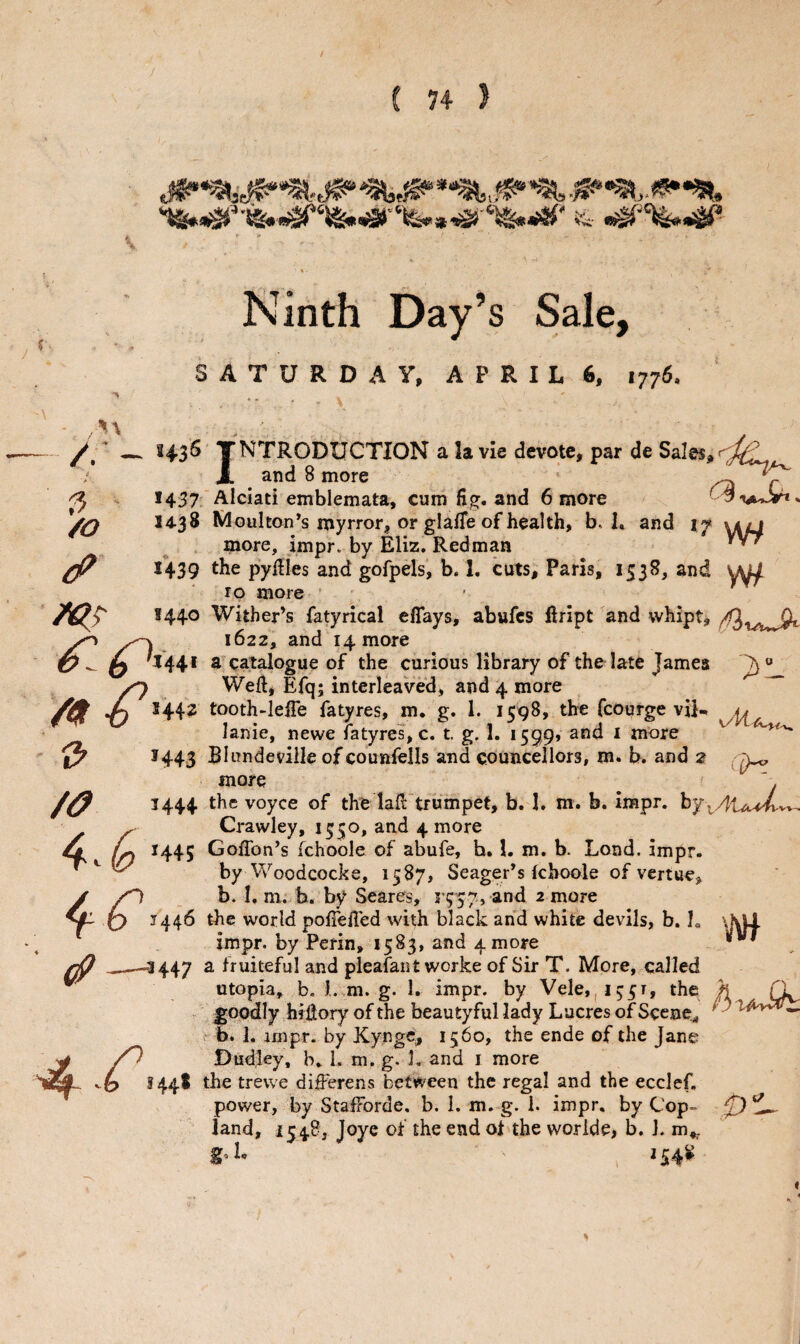 ( 74 )
Ninth Day’s Sale,
SATURDAY, APRIL 6, 1776.
1. — 1436 INTRODUCTION a la vie devote, par de Sales,
and 8 more
3 1437 Alciati emblemata, cum fig. and 6 more
10 1438 Moulton’s myrror, or glaſſe of health, b. l. and 17 WH
more, impr. by Eliz. Redman
1439 the pyſtles and goſpels, b. l. cuts, Paris, 1538, and WH
10 more
1440 Wither’s ſatyrical eſſays, abuſes ſtript and whipt,
1622, and 14 more
6. 6 1441 a catalogue of the curious library of the late James
Weſt, Eſq; interleaved, and 4 more
1442 tooth-leſſe ſatyres, m. g. l. 1598, the ſcourge vil-
lanie, newe ſatyres, c. t. g. l. 1599, and 1 more
3 1443 Blundeville of counſells and councellors, m. b. and 2
more
10 1444 the voyce of the laſt trumpet, b. l. m. b. impr. by
Crawley, 1550, and 4 more
4. 6 1445 Goſſon’s ſchoole of abuſe, b. l. m. b. Lond. impr.
by Woodcocke, 1587, Seager’s ſchoole of vertue,
b. l. m. b. by Seares, 1557, and 2 more
4 6 1446 the world poſſeſſed with black and white devils, b. l. WH
impr. by Perin, 1583, and 4 more
1447 a fruiteful and pleaſant worke of Sir T. More, called
utopia, b. l. m. g. l. impr. by Vele, 1551, the
goodly hiſtory of the beautyful lady Lucres of Scene,
b. l. impr. by Kynge, 1560, the ende of the Jane
Dudley, b. l. m. g. l. and 1 more
4. 6 1448 the trewe differens between the regal and the ecclef.
power, by Stafforde. b. l. m. g. l. impr. by Cop-
land, 1548, Joye of the end of the worlde, b. l. m.
g. l. 1548